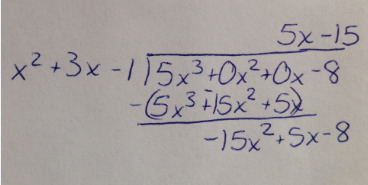 5x-15
x²+3x-1)5x³+0x²+0x-8
-(5x³+15x²+5x)
-15x²+5x-8